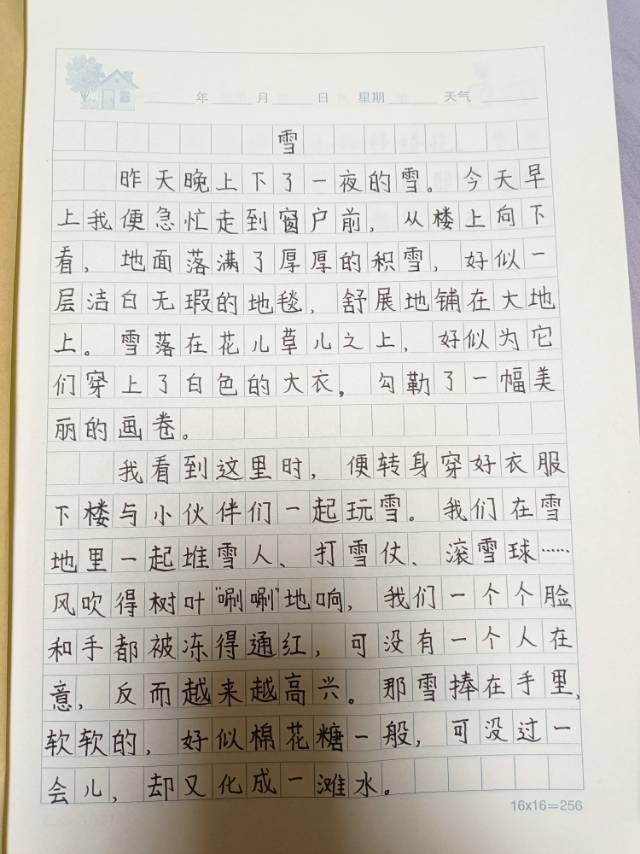 年 月 日 星期 天气
雪
昨天晚上下了一夜的雪。今天早
上我便急忙走到窗户前，从楼上向下
看，地面落满了厚厚的积雪，好似一
层洁白无瑕的地毯，舒展地铺在大地
上。雪落在花儿草儿之上，好似为它
们穿上了白色的大衣，勾勒了一幅美
丽的画卷。
我看到这里时，便转身穿好衣服
下楼与小伙伴们一起玩雪。我们在雪
地里一起堆雪人、打雪仗、滚雪球……
风吹得树叶“唰唰”地响，我们一个个脸
和手都被冻得通红，可没有一个人在
意，反而越来越高兴。那雪捧在手里，
软软的，好似棉花糖一般，可没过一
会儿，却又化成一滩水。
16x16=256